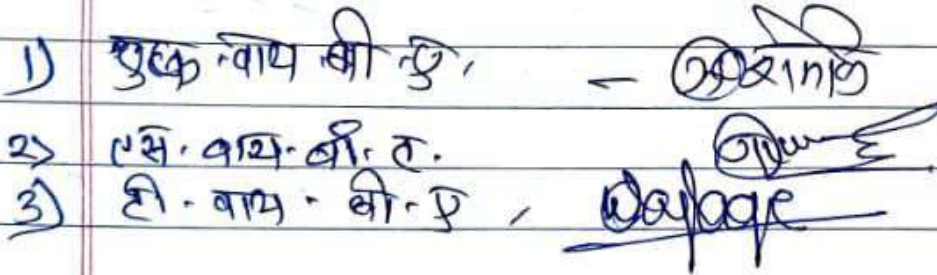 1) एफ.वाय.बी.ए. -
2) एस.वाय.बी.ए.
3) टी.वाय.बी.ए,